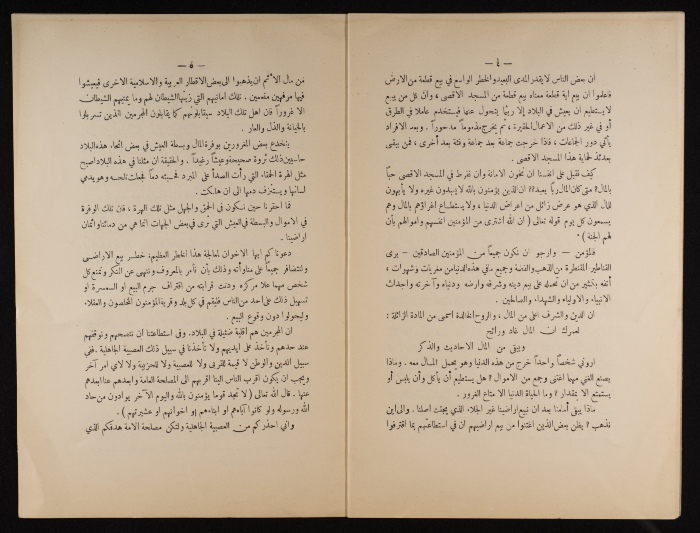 — ٤ —
ان بعض الناس لا يقدر المدى البعيد والخطر الواسع في بيع قطعة من الارض
فاعلموا ان بيع اية قطعة معناه بيع قطعة من المسجد الاقصى ، وان كل من يبيع
لا يستطيع ان يعيش في البلاد إلا ريثما يتحول عنها فيستخدم عاملا في الطرق
أو في غير ذلك من الاعمال الحقيرة ، ثم يخرج مذموماً مدحوراً . وبعد الافراد
يأتي دور الجماعات ، فاذا خرجت جماعة بعد جماعة وفئة بعد أخرى ، فمن يبقى
بعدئذ لحماية هذا المسجد الاقصى .
كيف نقبل على انفسنا ان نخون الامانة وان نفرط في المسجد الاقصى حباً
بالمال ؟ متى كان المال ربّا يعبد ؟؟ ان الذين يؤمنون بالله لا يعبدون غيره ولا يأبهون
للمال الذي هو عرض زائل من اعراض الدنيا ، ولا يستطاع اغراؤهم بالمال وهم
يسمعون كل يوم قوله تعالى ( ان الله اشترى من المؤمنين انفسهم واموالهم بأن
لهم الجنة ) .
فالمؤمن — وارجو ان نكون جميعاً من المؤمنين الصادقين — يرى
القناطير المقنطرة من الذهب والفضة وجميع مافي هذه الدنيا من مغريات وشهوات ،
أتفه بكثير من ان تحمله على بيع دينه وشرفه وارضه ودنياه وآخرته واجداث
الانبياء والاولياء والشهداء والصالحين .
ان الدين والشرف اعلى من المال ، والروح الخالدة اسمى من المادة الزائلة :
لعمرك ان المال غاد ورائح
ويبقى من المال الاحاديث والذكر
اروني شخصاً واحداً خرج من هذه الدنيا وهو يحمل المال معه . وماذا
يصنع الغني مهما اغتنى وجمع من الاموال ؟ هل يستطيع أن يأكل وأن يلبس أو
يستمتع الا بمقدار ؟ وما الحياة الدنيا الا متاع الغرور .
ماذا يبقى أمامنا بعد ان نبيع اراضينا غير الجلاء الذي يجتث اصلنا . والى اين
نذهب ؟ يظن بعض الذين اغتنوا من بيع اراضيهم ان في استطاعتهم بما اقترفوا
— ٥ —
من مال الاثم ان يذهبوا الى بعض الاقطار العربية والاسلامية الاخرى فيعيشوا
فيها مرفهين منعمين . تلك أمانيهم التي زينها الشيطان لهم وما يمنيهم الشيطان
الا غروراً فان اهل تلك البلاد سيقابلونهم كما يقابلون المجرمين الذين تسربلوا
بالخيانة والذل والعار .
ينخدع بعض المغرورين بوفرة المال وبسطة العيش في بعض أنحاء هذه البلاد
حاسبين ذلك ثروة صحيحة وعيشاً رغيداً . والحقيقة ان مثلنا في هذه البلاد اصبح
مثل الهرة الحمقاء التي رأت الصدأ على المبرد فحسبته دماً فجعلت تلحسه وهو يدمي
لسانها ويستنزف دمها الى ان هلكت .
فما احقرنا حين نكون في الحمق والجهل مثل تلك الهرة ، فان تلك الوفرة
في الاموال والبسطة في العيش التي ترى في بعض الجهات انما هي من دمائنا واثمان
اراضينا .
دعوناكم ايها الاخوان لمعالجة هذا الخطر العظيم، خطر بيع الاراضي
ولنتضافر جميعاً على مناوأته وذلك بأن نأمر بالمعروف وننهى عن المنكر ونمنع كل
شخص مهما علا مركزه ودنت قرابته من اقتراف جرم البيع او السمسرة او
تسهيل ذلك على احد من الناس فليقم في كل بلد وقرية المؤمنون المخلصون والعقلاء
وليحولوا دون وقوع البيع .
ان المجرمين هم أقلية ضئيلة في البلاد، وفي استطاعتنا أن ننصحهم ونوقفهم
عند حدهم ونأخذ على ايديهم ولا تأخذنا في سبيل ذلك العصبية الجاهلية . ففي
سبيل الدين والوطن لا قيمة للقربى ولا للعصبية ولا للحزبية ولا لاي امر آخر
ويجب ان يكون اقرب الناس الينا اقربهم الى المصلحة العامة وأبعدهم عنا ابعدهم
عنها . قال الله تعالى ( لا تجد قوما يؤمنون بالله واليوم الآخر يوادون من حاد
الله ورسوله ولو كانوا آباءهم او ابناءهم او اخوانهم او عشيرتهم ) .
واني احذركم من العصبية الجاهلية ولتكن مصلحة الامة هدفكم الذي